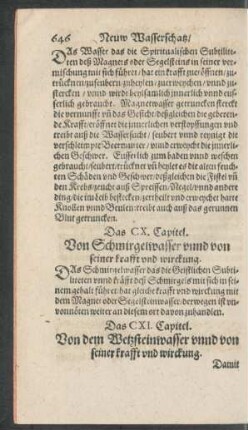 646 Neuw Wasserschatz/
DAs Wasser das die Spiritualischen Subtilite-
ten deß Magnets oder Segelsteins in seiner ver-
mischung mit sich führt/ hat ein krafft zueröffnen/zu-
trücknen/zuseubern/zuheylen/zuerweychen/ vnnd zu-
stercken/ vnnd wirdt beydsamblich innerlich vnnd eus-
serlich gebraucht. Magnetwasser getruncken sterckt
die vernunfft/ vñ das Gesicht/ deßgleichen die geberen-
de Krafft/ eröffnet die innerlichen verstopffungen vnd
treibt auß die Wassersucht/ seubert vnnd reyniget die
verschleimpte Beermutter/ vnnd erweycht die innerlichen
Geschwer. Eusserlich zum baden vnnd weschen
gebraucht/ seubert/trücknet vñ heylet es die alten feuch-
ten Schäden vnd Geschwer/ deßgleichen die Fistel vñ
den Krebs/zeucht auß Spreissen/Negel/vnnd ander
ding/ die im leib stecken/zertheilt vnd erweychet harte
Knollen vnnd Beulen/ treibt auch auß das gerunnen
Blut getruncken.
Das CX. Capitel.
Von Schmirgelwasser vnnd von
seiner krafft vnd wirckung.
DAs Schmirgelwasser das die Geistlichen Subti-
liteten vnnd kräfft deß Schmirgels mit sich in sei-
nem gehalt führet/ hat gleiche krafft vnd wirckung mit
dem Magnet oder Segelsteinwasser/ derwegen ist vn-
vonnöten weiter an diesem ort davon zuhandlen.
Das CXI. Capitel.
Von dem Wetzsteinwasser vnnd von
seiner krafft vnd wirckung.
Damit